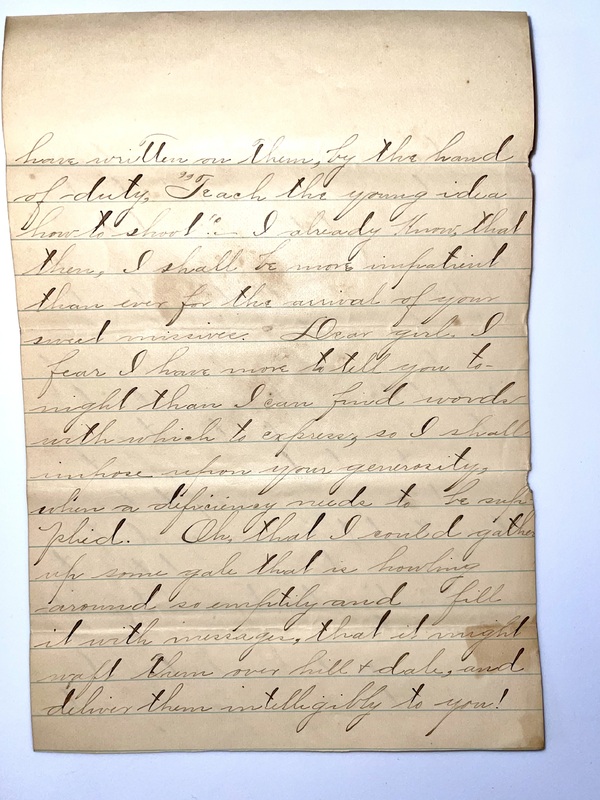 have written on them, by the hand
of duty, "Teach the young idea
how to shoot". I already know, that
then, I shall be more impatient
than ever for the arrival of your
sweet missives. Dear girl, I
fear I have more to tell you to-
night than I can find words
with which to express, so I shall
imhose uhon your generosity,
when a dificiency needs to be sup-
plied. Oh, that I could gather
up some gale that is howling
around so emptily and fill
it with messages, that it might
waft them over hill & dale, and
deliver them intelligibly to you!